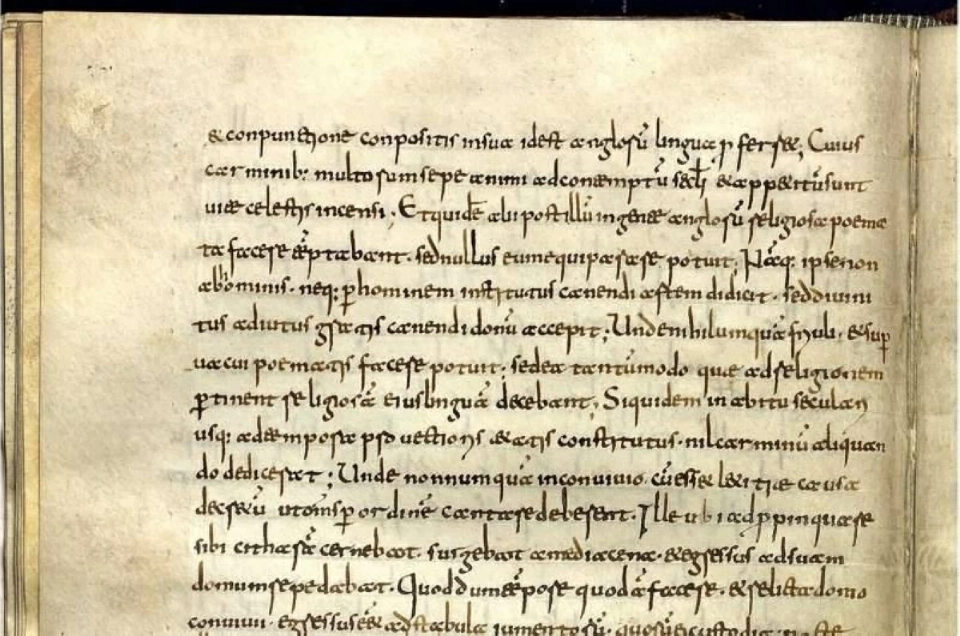 & conpunctione conpositis insua idest anglorū lingua ꝓferret; Cuius
carminib: multorum sepe animi adcontemptū secłi & appetitū sunt
uitae celestis incensi. Et quidē alii post illū ingente anglorū religiosa poema
ta facere tēptabant. sed nullus eum equiparare potuit; Nāq: ipse non
abhominis. neq: ꝑ hominem institutus canendi artem didicit. sed diuini
tus adiutus gratis canendi donū accepit; Unde nihil umquā friuoli. & suꝑ
uacui poematis facere potuit; sed ea tantūmodo quae ad religionem
ꝑtinent religiosā eius linguā decebant; Siquidem in abitu seculari
usq: ad tempora prouectioris aetatis constitutus. nil carminū aliquan
do dedicerat; Unde nonnumquā in conuiuio. cū esset laetitiae causa
decretū ut omīs ꝑ ordinē cantare deberent. Ille ubi adꝓpinquare
sibi citharā cernebat. surgebat a media cena. & egressus ad suam
domum sepedabat. Quod dum tēpore quodā faceret. & relicta domo
conuiui. egressus eēt ad stabula iumentorū. quorū ei custodia nocte